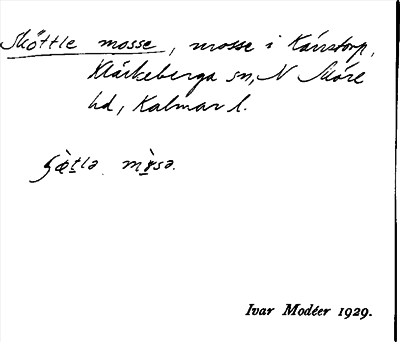 Sköttle mosse, mosse i Kärrstorp,
Kläckeberga sn, N Möre
hd, Kalmar l.
mòsə.
Ivar Modéer 1929.